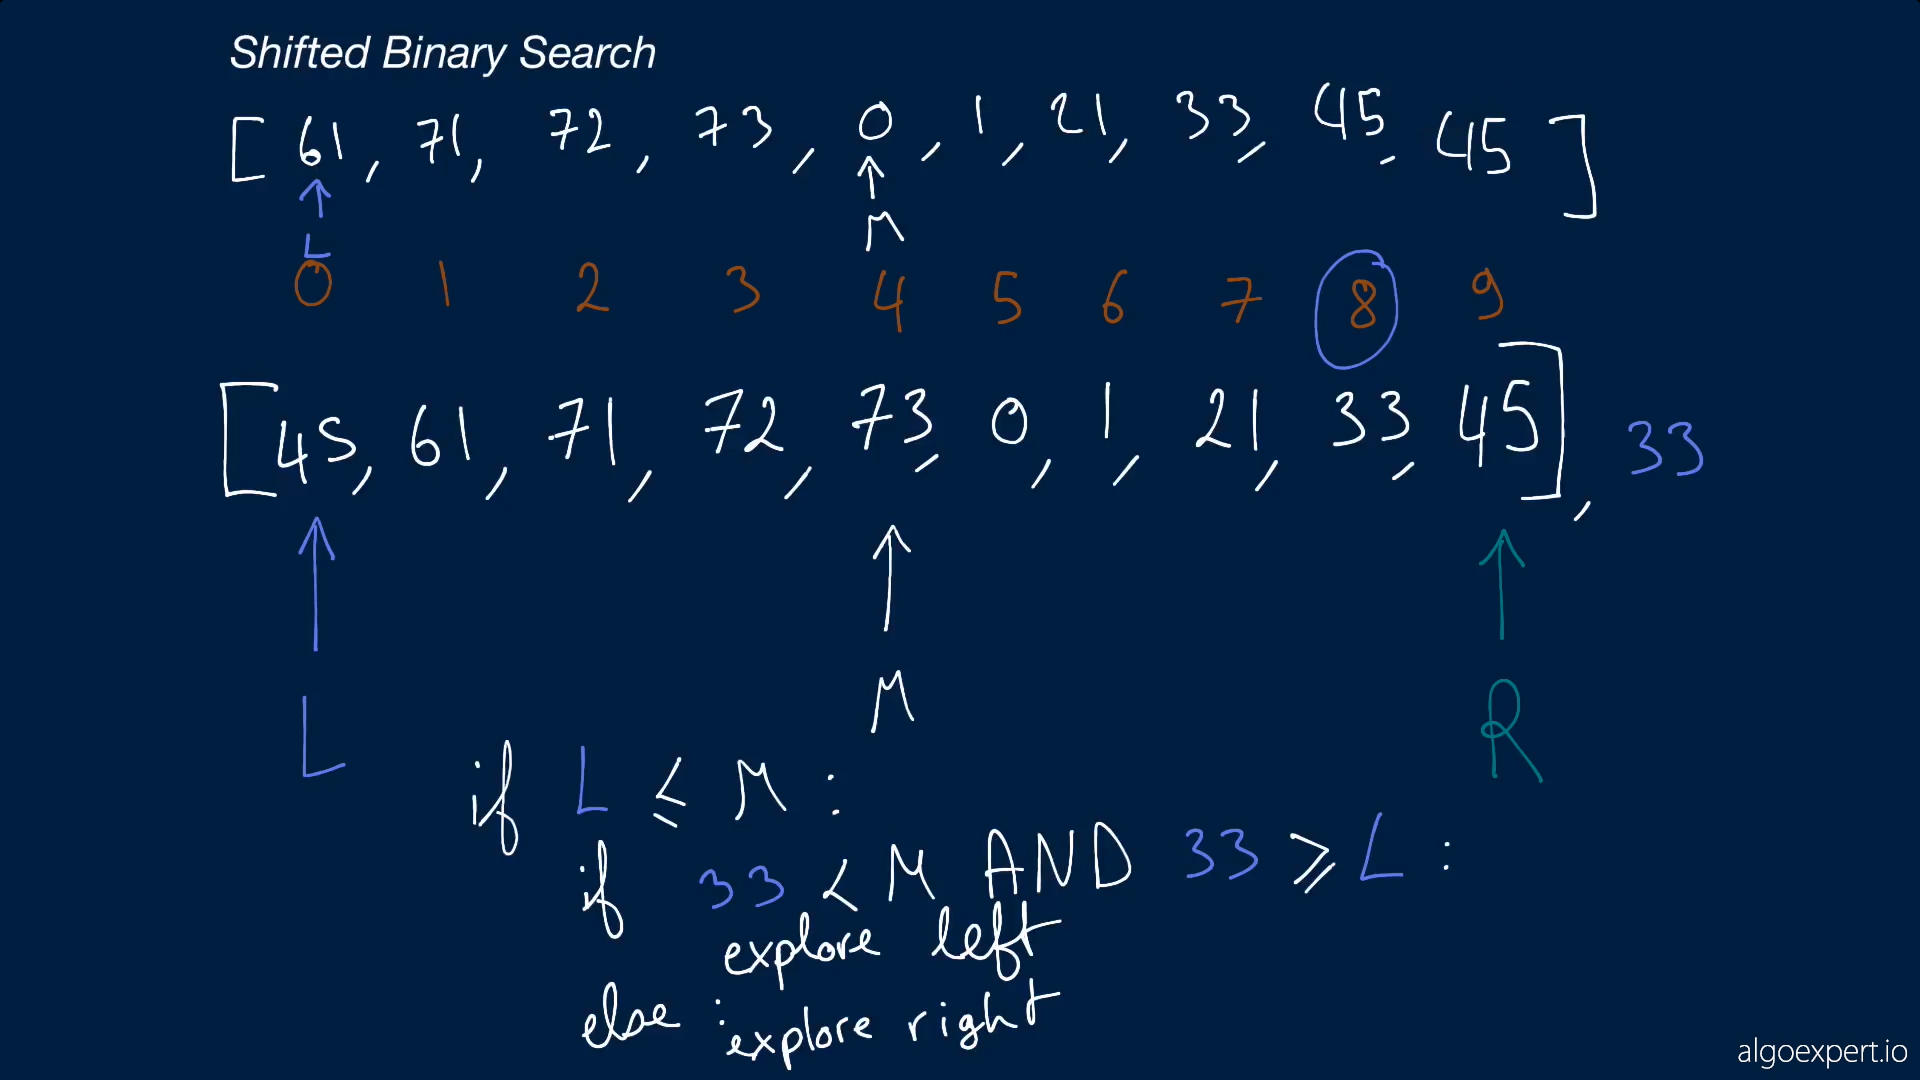 Shifted Binary Search
[ 61, 71, 72, 73, 0, 1, 21, 33, 45, 45 ]
L M
0 1 2 3 4 5 6 7 8 9
[ 45, 61, 71, 72, 73, 0, 1, 21, 33, 45 ], 33
L M R
if L ≤ M :
if 33 < M AND 33 ≥ L :
explore left
else :
explore right
algoexpert.io